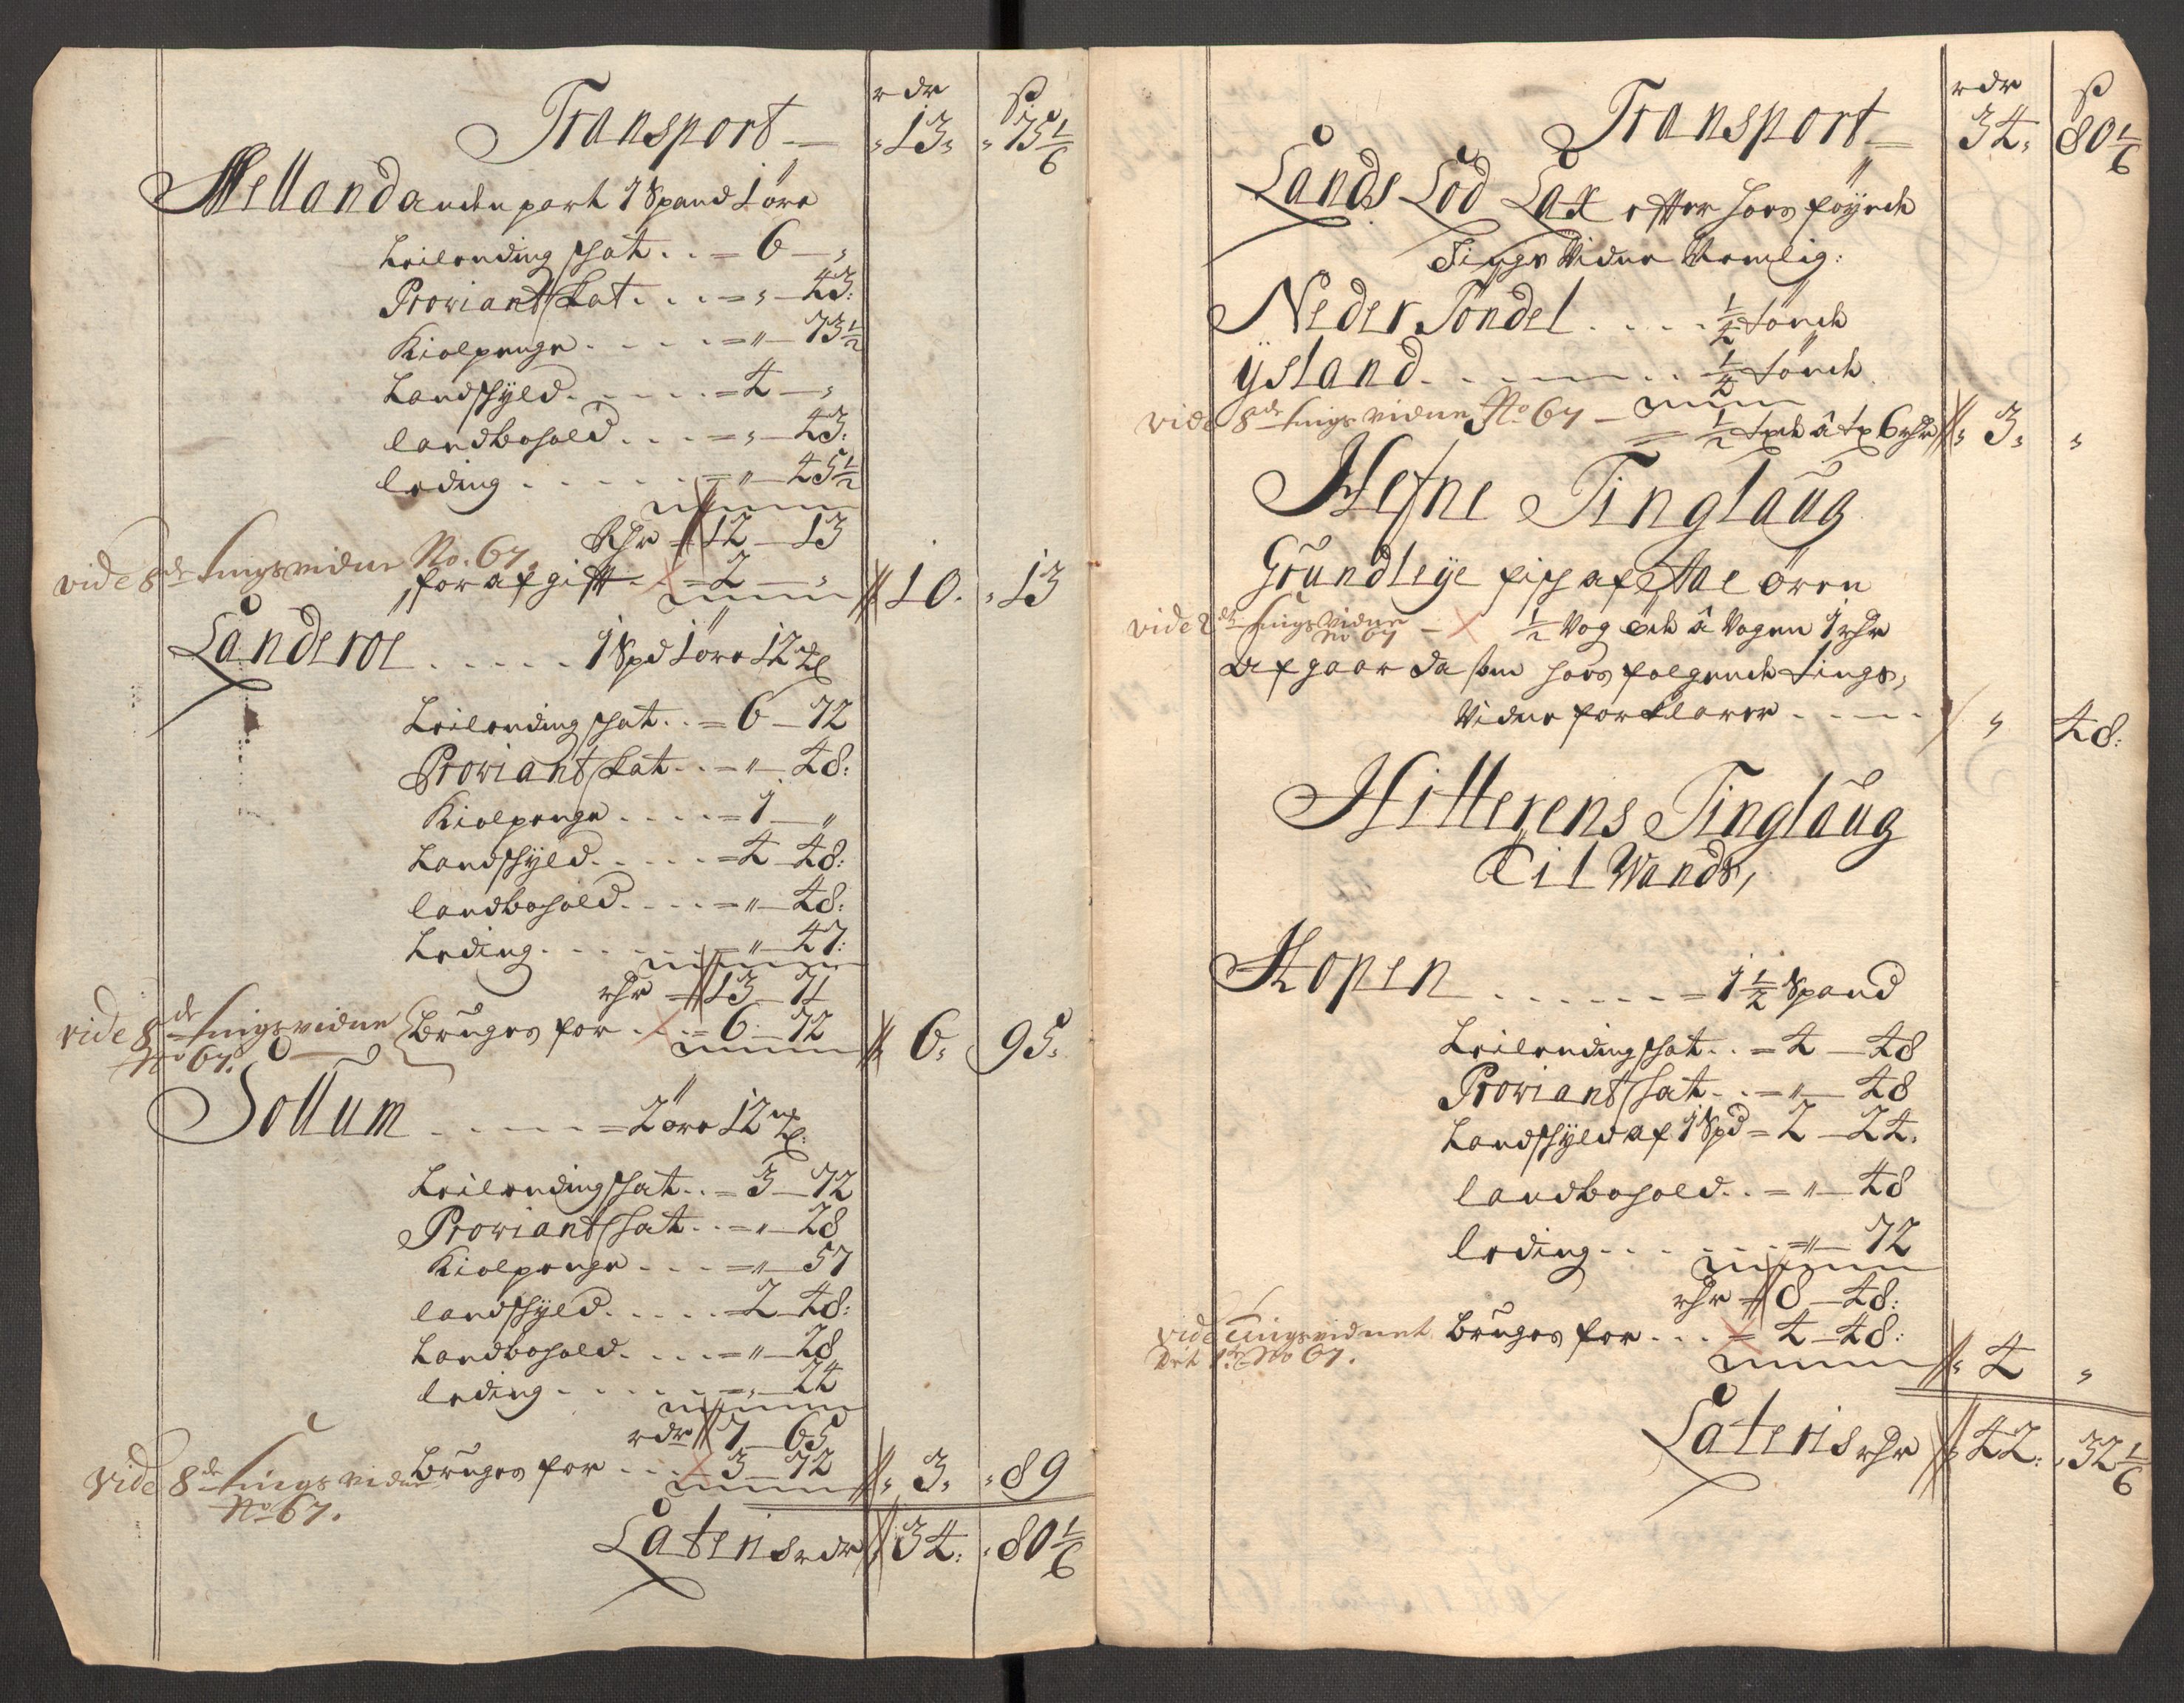 rdr ß
Transport — 13 " 75 1/6
Melland anden part 1 Spand 1 öre
Leilending schat . . = 6 — "
Proviant Skat . . . = " — 43:
Kiolpenge . . . . = " — 73 1/2
Landschÿld . . . . . = 4 — "
landbohold . . . = " — 43:
leding . . . . . . = " — 45 1/2
Rdr 12 — 13
vide 8de tingsvidne No. 67.
for afgift . = 2 — " 10. " 13
Landeroe . . . . . 1 Spd 1 öre 12 ml
Leilending schat . . = 6 — 72
Proviant Skat . . = " — 48:
Kiolpenge . . . . = 1 — "
Landschÿld . . . . . = 4 — 48:
landbohold . . . . = " — 48:
Leding . . . . . . = " — 47:
rdr 13 — 71
vide 8de tingsvidne No 67. Bruges for . . . = 6 — 72 6. 95.
Sollum . . . . = 2 öre 12 ml:
Leilending schat . . = 3 — 72
Proviant Schat . . = " — 28
Kiolpenge . . . = " — 57
landschÿld . . . . . = 2 — 48:
Landbohold . . . . = " — 28
leding . . . . . . = " — 24
rdr 7 — 65
vide 8de tings vidne No 67. Bruges for . . . = 3 — 72 3. " 89
Lateris rdr 34. " 80 1/6
rdr ß
Transport 34. 80 1/6
Lands Lod Lax efter hoes föÿede
Tings Vidne Nemlig:
Neder Töndel . . . . 1/4 tönde
ÿsland . . . . . . 1/4 tönde
vide 8de tings vidne No 67 — = 1/2 tde â td 6 rdr 3. "
Hefne Tinglaug
Grundleÿe fisch af Aae ören
vide 2de tings vidne No 67 — 1/2 Vog â Vogen 1 rdr
afgaar da som hoes folgende tings,
Vidne forklarer . . . . " 48:
Hitterens Tinglaug
Til Wands,
Hopen . . . . . . = 1 1/2 Spand
Leilending schat . . = 4 — 48
Proviant Schat . . = " — 48
Landschÿld af 1 Spd = 2 — 24.
landbohold . . = " — 48
leding . . . . . . = " — 72
rdr 8 — 48:
vide Tingsvidnet Det 1te No 67. Bruges for . . . = 4 — 48: 4 "
Lateris rdr 42: " 32 1/6